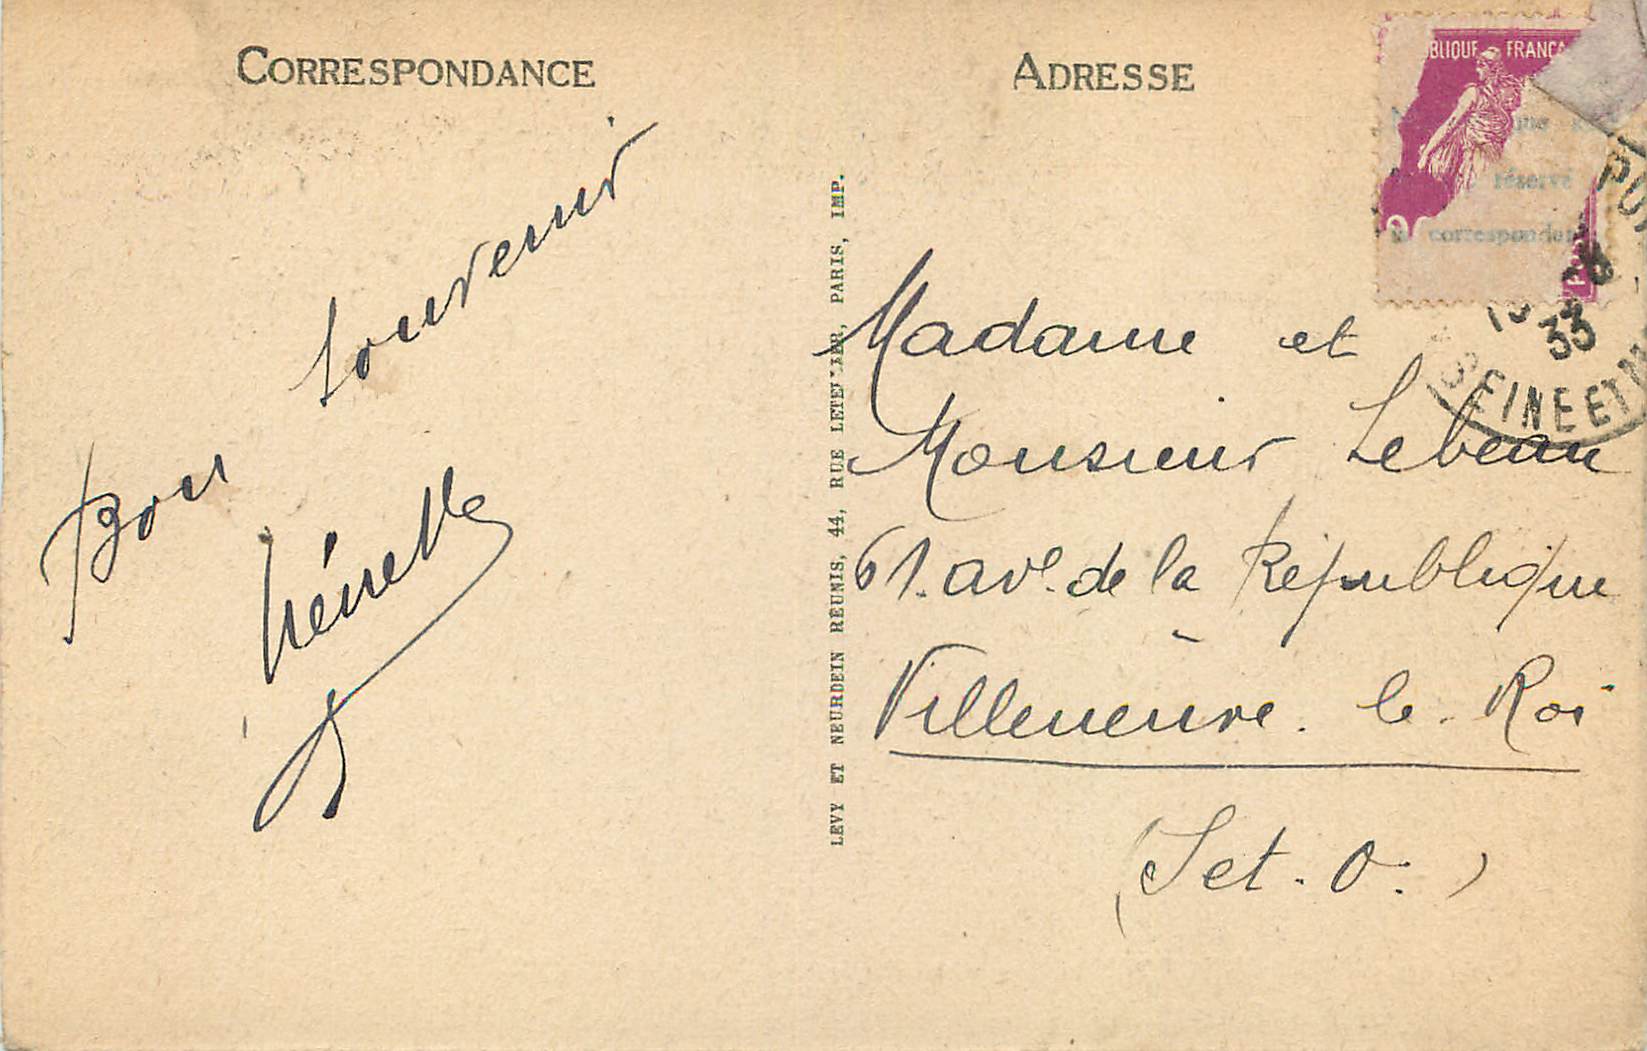 CORRESPONDANCE
Bon souvenir
Nénette
LEVY ET NEURDEIN REUNIS, 44, RUE LETELLIER, PARIS, IMP.
ADRESSE
BLIQUE FRANCA
réservé
correspondan
33
SEINE ET M
Madame et
Monsieur Lebeau
61. avᵉ. de la République
Villeneuve. le. Roi
(S et. O.)